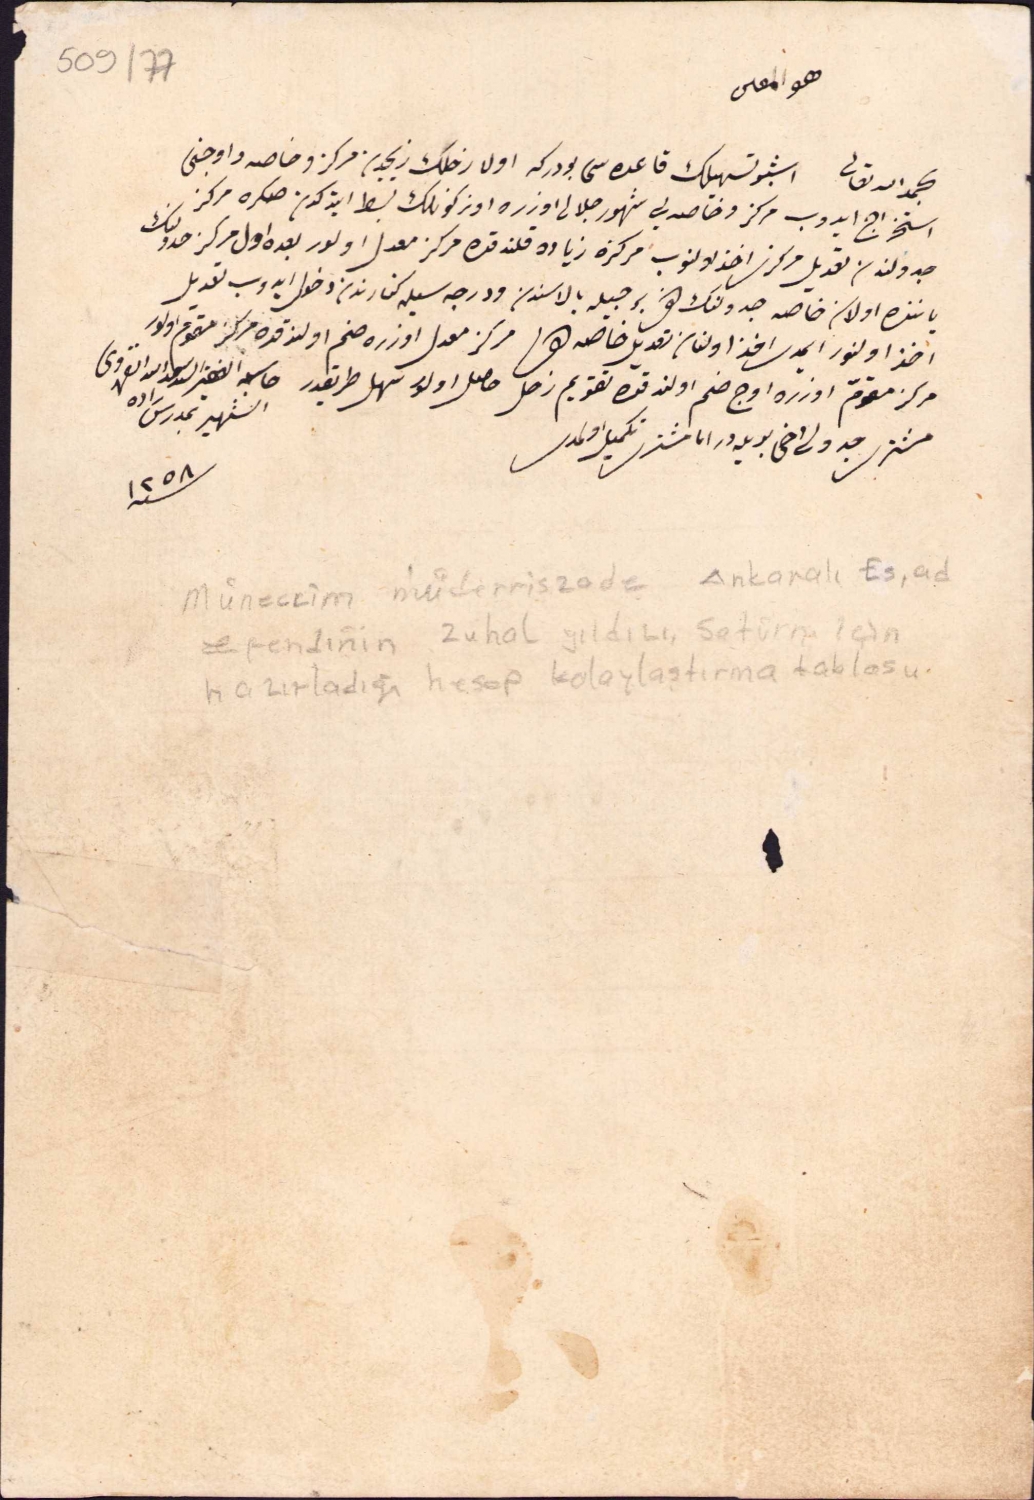 509/77
هو المعين
بحمد الله تعالى اشبو تسهيلك قاعده سى بودركه اولا زحلك زيجدن مركز و خاصه و اوجنى
استخراج ايدوب مركز و خاصه يى شهور جلالى اوزره اونر كونلك بسط ايتدكدن صكره مركز
جدولندن تعديل مركزى اخذ اولنوب مركزه زياده قلندقده مركز معدل اولور بعده اول مركز جدولنك
ياننده اولان خاصه جدولنك برجيله بالاسندن و درجه سيله كنارندن دخول ايدوب تعديل
اخذ اولنور ايمدى اخذ اولنان تعديل خاصه مركز معدل اوزره ضم اولندقده مركز مقوم اولور
مركز مقوم اوزره اوج ضم اولندقده تقويم زحل حاصل اولور سهل طريقدر
الفقير السيد اسعد الانقروى
الشهير بمدرس زاده
مشترى جدولى دخى بويله در اما مشترى تكميل اولمدى
سنه ١٢٥٨
Müneccim müderriszade Ankaralı Es,ad
efendinin Zuhal yıldızı, Satürn için
hazırladığı hesap kolaylaştırma tablosu.